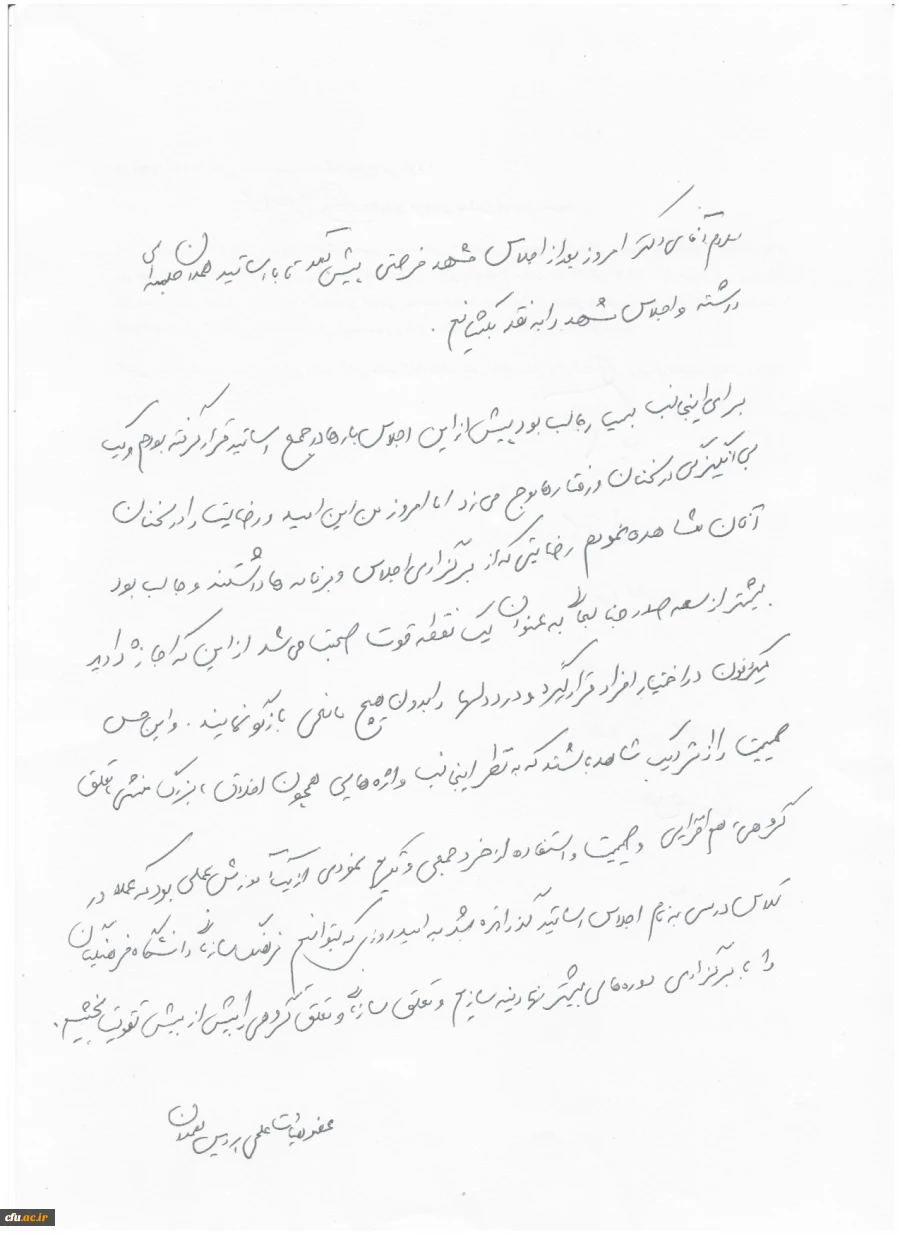 سلام آقای دکتر امروز بعد از اجلاس مشهد فرصتی پیش آمد تا با اساتید همدان جلسه ای
داشته و اجلاس مشهد را به نقد بکشانیم .
برای اینجانب بسیار جالب بود پیش از این اجلاس بارها در جمع اساتید قرار گرفته بودم و یک
بی انگیزگی در سخنان و رفتارها موج می زد اما امروز من این امید و رضایت را در سخنان
آنان مشاهده نمودم رضایتی که از برگزاری اجلاس و برنامه ها داشتند و جالب بود
بیشتر از سعه صدر جنابعالی به عنوان یک نقطه قوت صحبت می شد از این که اجازه دادید
میکروفون در اختیار افراد قرار گیرد و درد دلها را بدون هیچ مانعی بازگو نمایند . و این حس
صمیمیت را از نزدیک شاهد باشند که به نظر اینجانب واژه هایی همچون اخلاق ، بزرگ منشی ، تعلق
گروهی ، هم افزایی و صمیمیت و استفاده از خرد جمعی و تکریم نمودی از یک آموزش عملی بود که عملا در
کلاس درسی به نام اجلاس اساتید گذرانده شد به امید روزی که بتوانیم فرهنگ سازمانی دانشگاه فرهنگیان
را با برگزاری دوره های بیشتر نهادینه سازیم و تعلق سازمانی و تعلق گروهی را بیش از پیش تقویت بخشیم .
عضو هیات علمی پردیس همدان
cfu.ac.ir